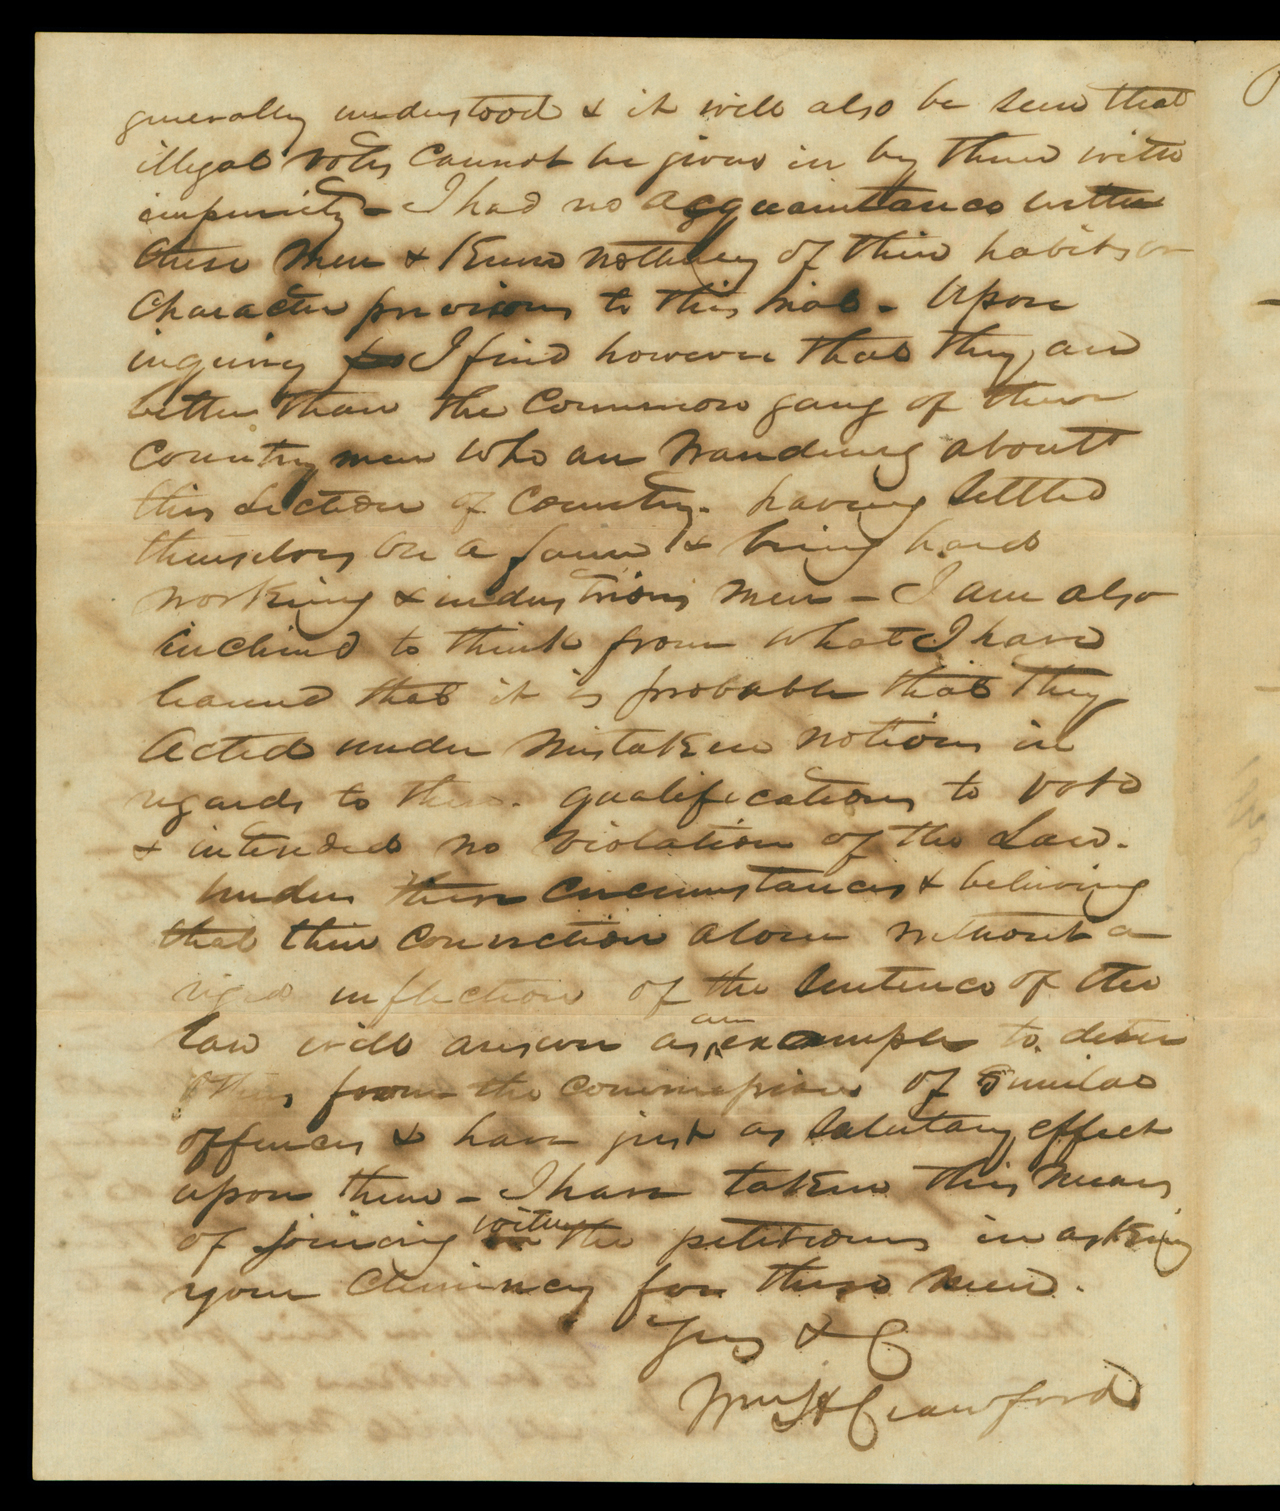 generally understood & it will also be seen that
illegal votes cannot be given in by them with
impunity - I had no acquaintance with
these men & knew nothing of their habits or
character previous to this trial - Upon
inquiry I find however that they are
better than the common gang of their
country men who are wandering about
this section of country. having settled
themselves on a farm & being hard
working & industrious men - I am also
inclined to think from what I have
learned that it is probable that they
acted under mistaken notions in
regards to their qualifications to vote
& intended no violation of the Law.
Under these circumstances & believing
that their conviction alone without a
riged inflection of the sentence of the
law will answer as an example to deter
others from the commission of similar
offences & have just as salutary effect
upon them - I have taken this means
of joining with the petitions in asking
your clemency for these men.
Yours &C
Wm H Crawford